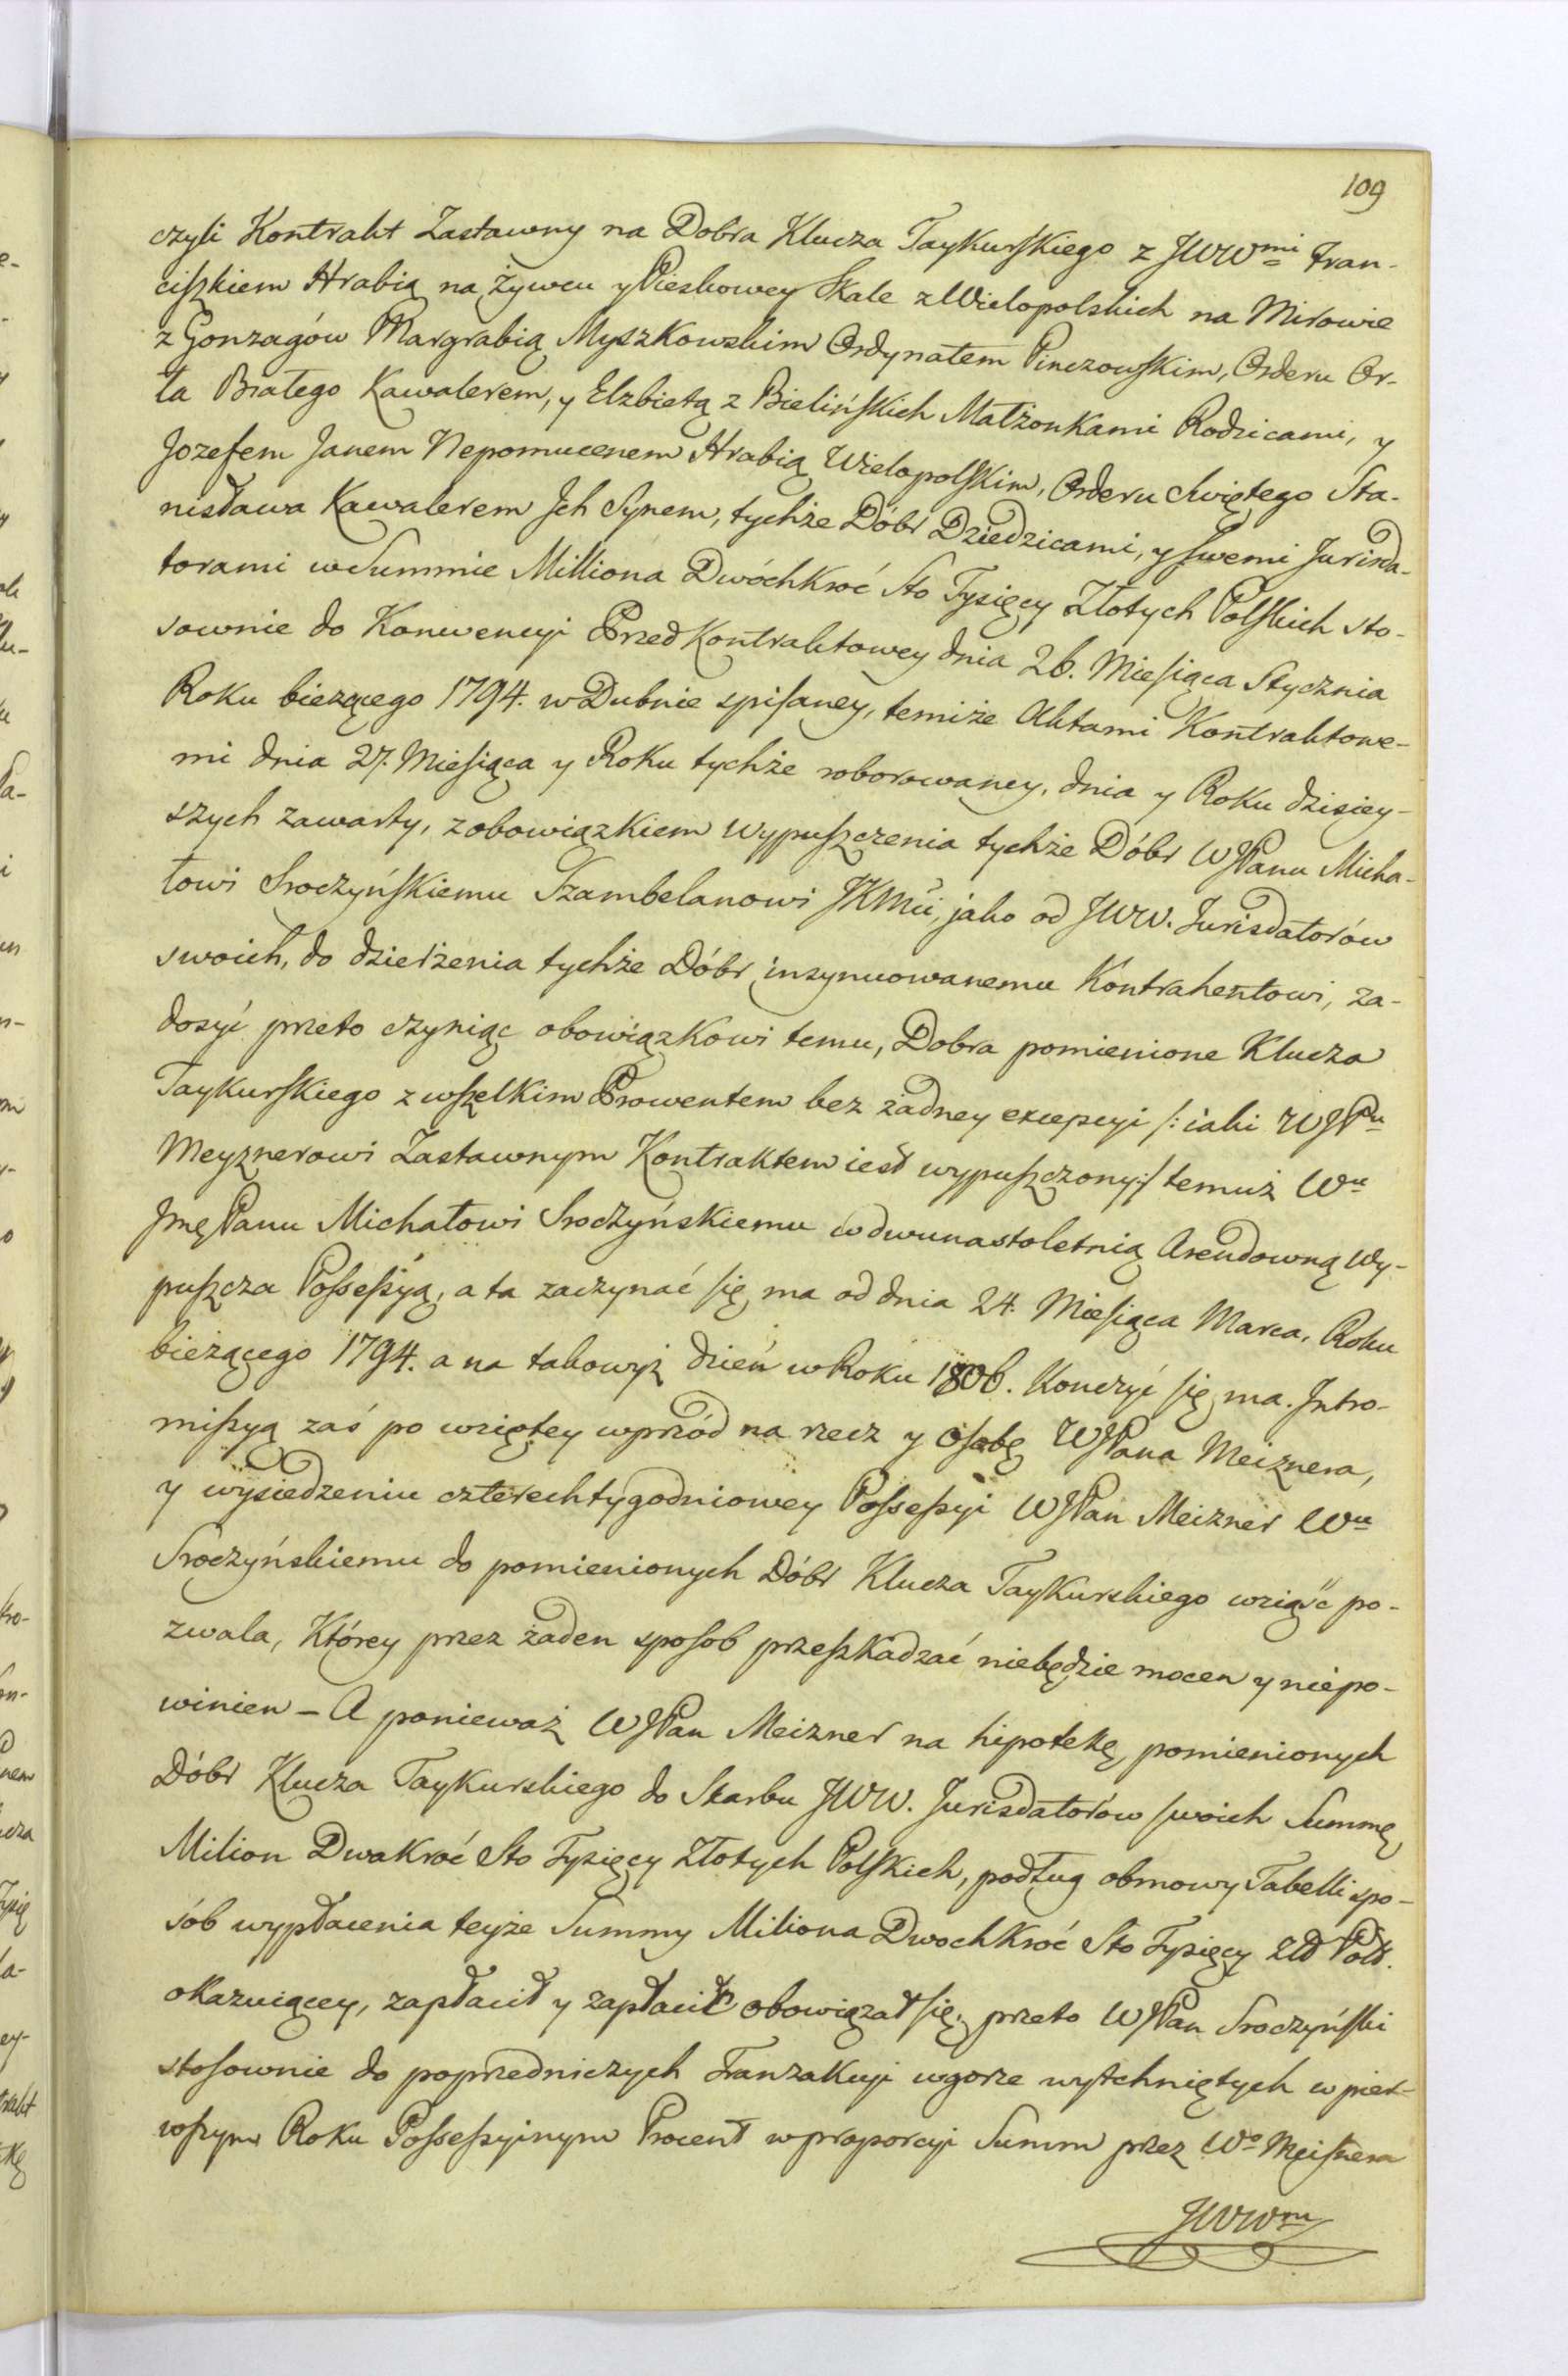 109
czyli Kontrakt Zastawny na Dobra Klucza Taykurskiego z JWW<sup>mi</sup> Fran-
ciszkiem Hrabią na Żywcu y Pieskowey Skale z Wielopolskich na Mirowie
z Gonzagów Margrabią Myszkowskim Ordynatem Pinczowskim, Orderu Or-
ła Białego Kawalerem, y Elzbietą z Bielińskich Małżonkami Rodzicami, y
Jozefem Janem Nepomucenem Hrabią Wielopolskim, Orderu Swiętego Sta-
nisława Kawalerem Jch Synem, tychże Dóbr Dziedzicami, y swemi Jurisda-
torami w Summie Milliona Dwóchkroć Sto Tysięcy Złotych Polskich sto-
sownie do Konwencyi Przed Kontraktowey dnia 26. Miesiąca Stycznia
Roku bieżącego 1794. w Dubnie spisaney, temiże Aktami Kontraktowe-
mi dnia 27. Miesiąca y Roku tychże roborowaney, dnia y Roku dzisiey-
szych zawarty, z obowiązkiem wypuszczenia tychże Dóbr WJPanu Micha-
łowi Sroczyńskiemu Szambelanowi JKMci, jako od JWW. Jurisdatorów
swoich, do dzierżenia tychże Dóbr insynuowanemu Kontrahentowi, za-
dosyć przeto czyniąc obowiązkowi temu, Dobra pomienione Klucza
Taykurskiego z wszelkim Prowentem bez żadney excepcyi /: iaki WJP<sup>nu</sup>
Meyznerowi Zastawnym Kontraktem iest wypuszczony :/ temuż W<sup>u</sup>
Jmę Panu Michałowi Sroczyńskiemu w dwunastoletnią Arendowną wy-
puszcza Possessyą, a ta zaczynać się ma od dnia 24. Miesiąca Marca, Roku
bieżącego 1794. a na takowyż dzień w Roku 1806. Konczyć się ma. Jntro-
missyą zaś po wziętey wprzód na rzecz y osobę WJPana Meiznera,
y wysiedzeniu czterechtygodniowey Possessyi WJPan Meizner W<sup>u</sup>
Sroczyńskiemu do pomienionych Dóbr Klucza Taykurskiego wziąść po-
zwala, Którey przez żaden sposob przeszkadzać niebędzie mocen y niepo-
winien – A ponieważ WJPan Meizner na hipotekę pomienionych
Dóbr Klucza Taykurskiego do Skarbu JWW. Jurisdatorów swoich Summę
Milion Dwakroć Sto Tysięcy Złotych Polskich, podług obmowy Tabelli spo-
sób wypłacenia teyże Summy Miliona Dwochkroć Sto Tysięcy Złł Pols.
okazuiącey, zapłacił y zapłacić obowiązał się; przeto WJPan Sroczyński
stosownie do poprzedniczych Tranzakcyi wgorze wytchniętych w pier-
wszym Roku Possessyinym Procent w proporcyi Summ przez W<sup>o</sup> Meisnera
JWW<sup>m</sup>